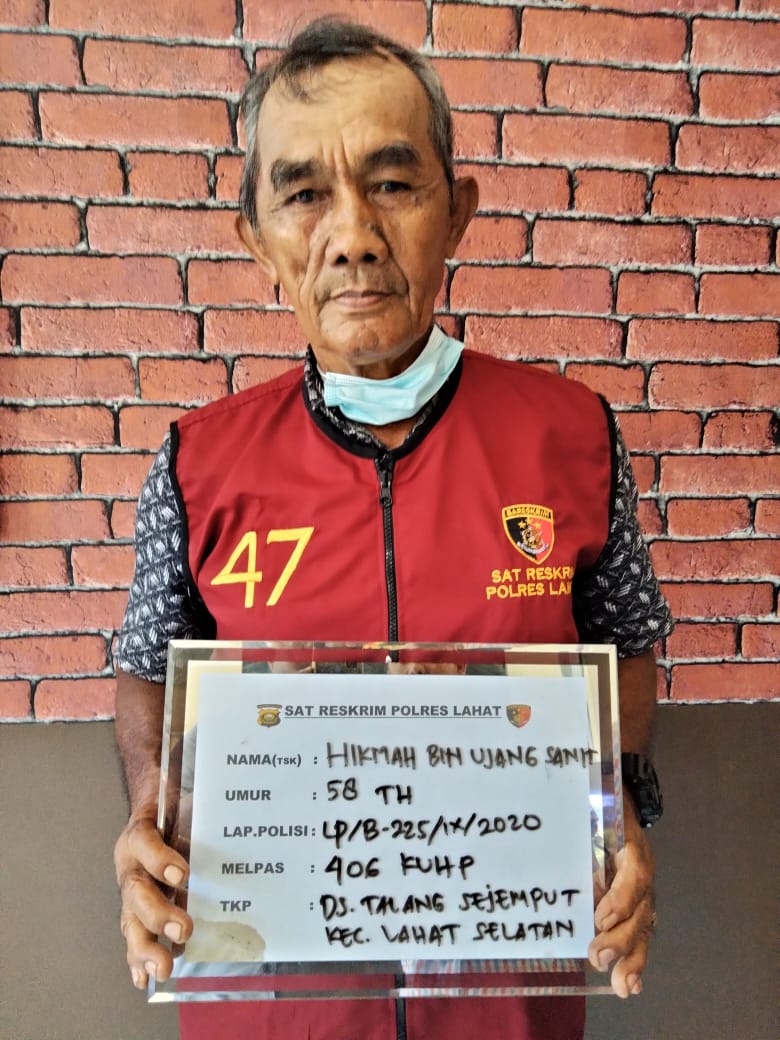 47
BARESKRIM
SAT RESKRIM
POLRES LAH
SAT RESKRIM POLRES LAHAT
NAMA(TSK) : HIKMAH BIN UJANG SANIT
UMUR : 58 TH
LAP.POLISI : LP/B-225/IX/2020
MELPAS : 406 KUHP
TKP : DS. TALANG SEJEMPUT
KEC. LAHAT SELATAN